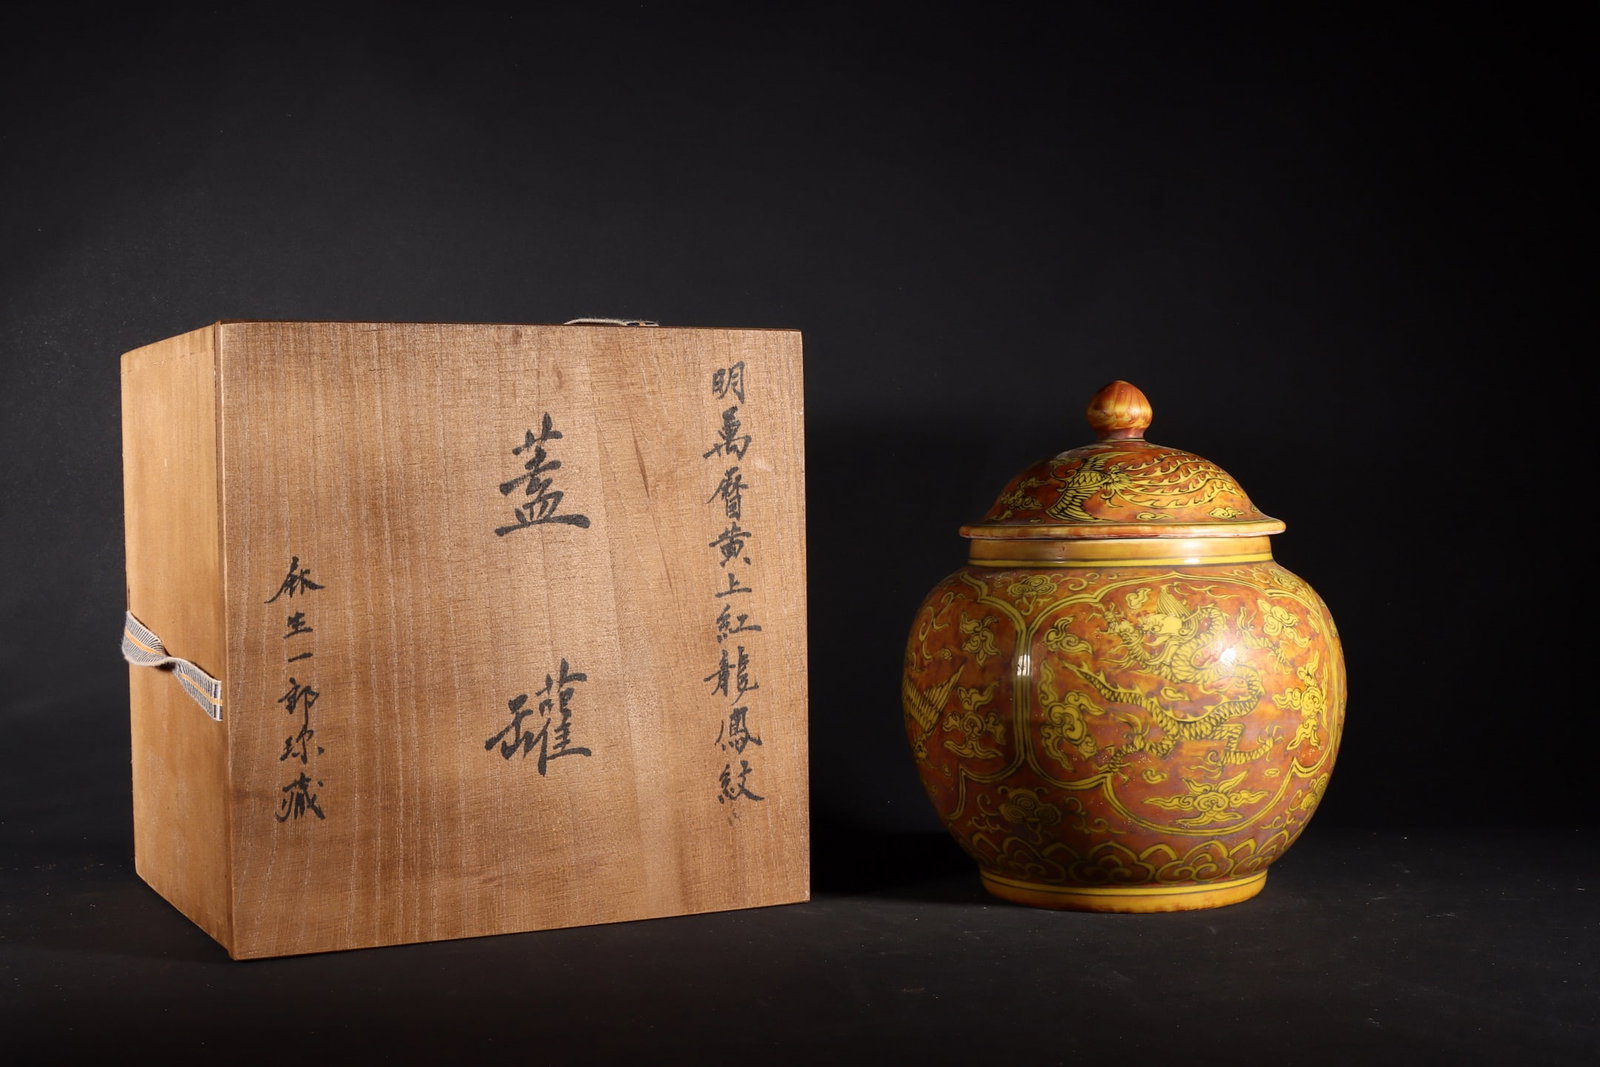 明萬曆黄上紅龍鳳紋
蓋罐
麻生一郎珍藏